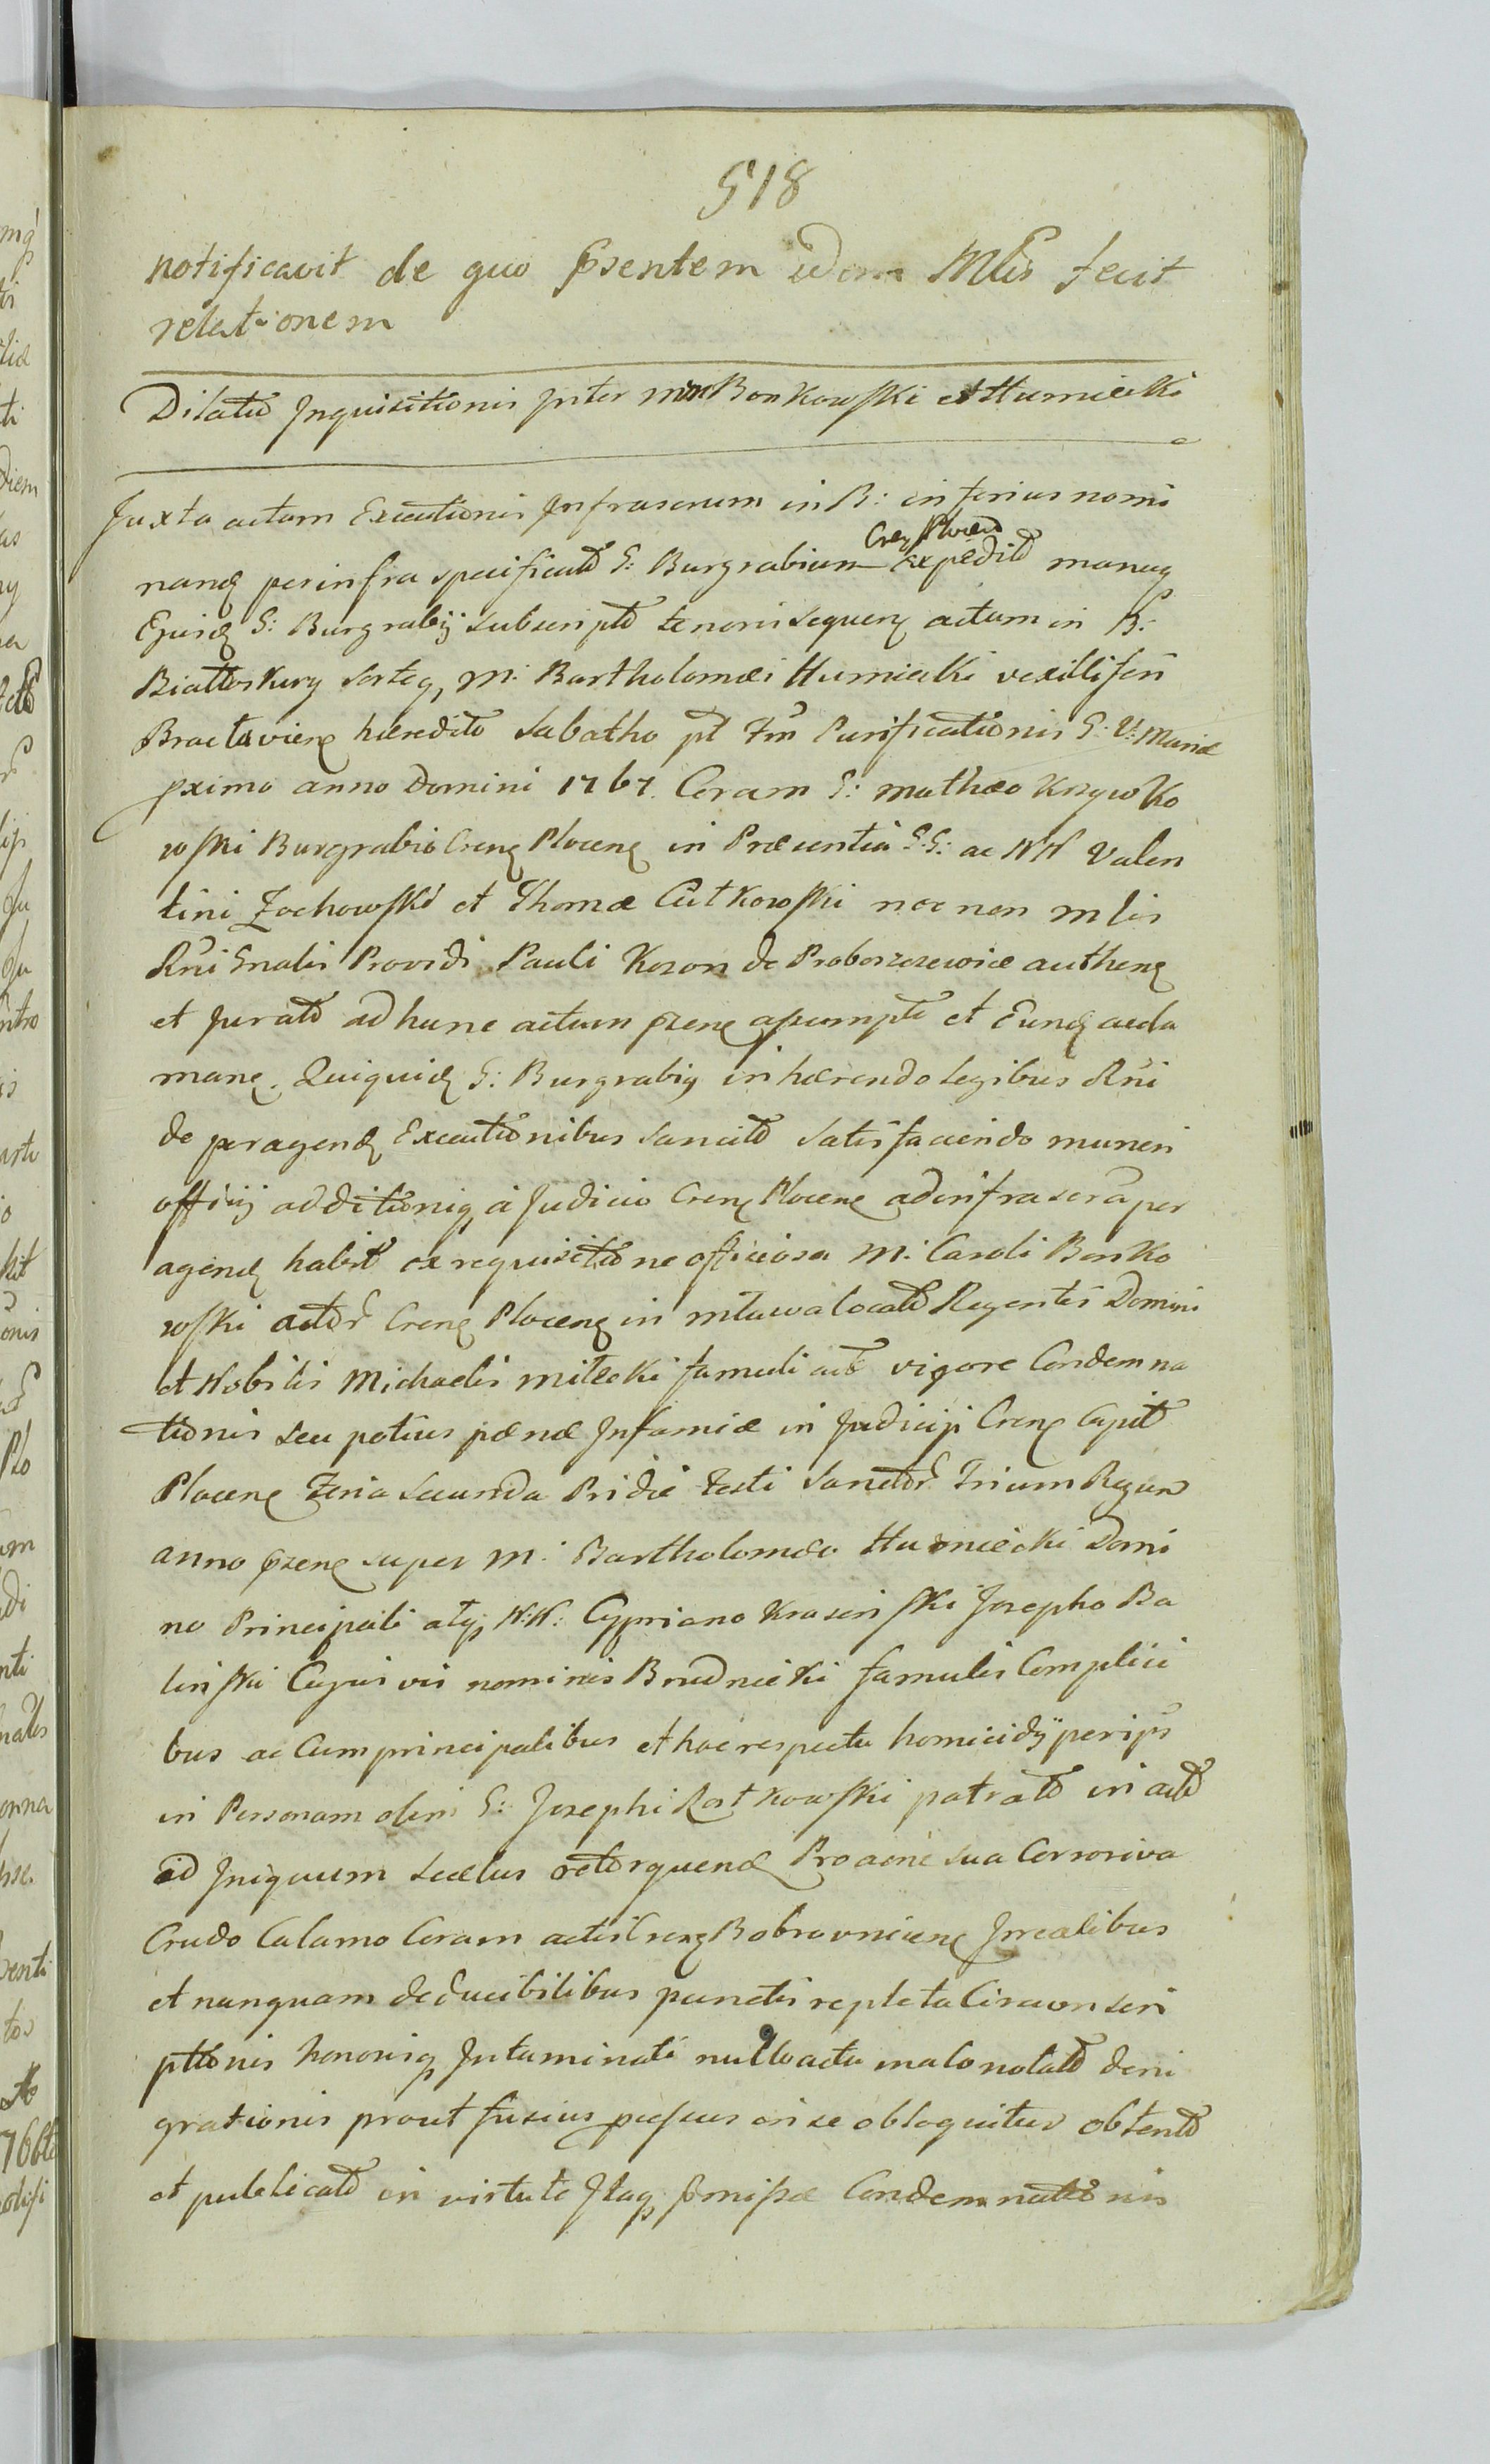 518
notificavit de quo prsentem idem Mlis fecit
relationem
Dilatio Inquisitionis Inter MM Bonkowski et Humiecki
Juxta actum Executionis Infrascrum in B: inferius nomi
nand per infra specificat G: Burgrabium Cren Plocen expedit manuq
Ejusd G: Burgrabij subscript tenoris sequen actum in B:
Biattoskury sorteq M: Bartholomæi Humiecki vexilliferi
Braclavien hæredit Sabatho pt Fm Purificationis S: V: Mariæ
pximo anno Domini 1767. Coram G: Mathæo Krzywko
wski Burgrabio Cren Plocen in Præsentia G.G: ac NN Valen
tini Zochowski et Thomæ Cutkowski nec non mlis
Rni Gnalis Providi Pauli Kozon de Proboszczewice authen
et jurat ad hunc actum przen assumpt et Eund acda
man. Quiquid G: Burgrabiq inhærendo legibus Rni
de peragend Executionibus sancit satisfaciendo muneri
officij additioniq à Judicio Cren Plocen ad infrascra per
agend habit ex requisitione officiosa M: Caroli Bonko
wski actor Cren Plocen in Mlawa locat Regentis Domini
et Nobilis Michaelis Milecki famuli act vigore Condemna
tionis seu potius pœnæ Infamiæ in Judicijs Cren Capit
Plocen Feria Secunda Pridie Festi Sanctor Trium Regum
anno przen super M: Bartholomæo Humiecki Domi
no Principali atq N:N: Cypriano Krasinski Josepho Ba
linski Cujusvis nominis Brudnicki famulis Complici
bus ac Cumprincipalibus et hoc respectu homicidij per ips
in Personam olim G: Josephi Rostkowski patrat in act
id Iniquum scelus retorquend Pro acne sua Corrosiva
Crudo Calamo Coram actis Cren Bobrovnicen Irrealibus
et nunquam deducibilibus punctis repleta Circumscri
ptionis honorisq Intaminati nullo actu malo notat deni
grationis prout fusius pressus in se obloquitur obtent
et publicat in virtute Itaq prmissæ Condemnationis